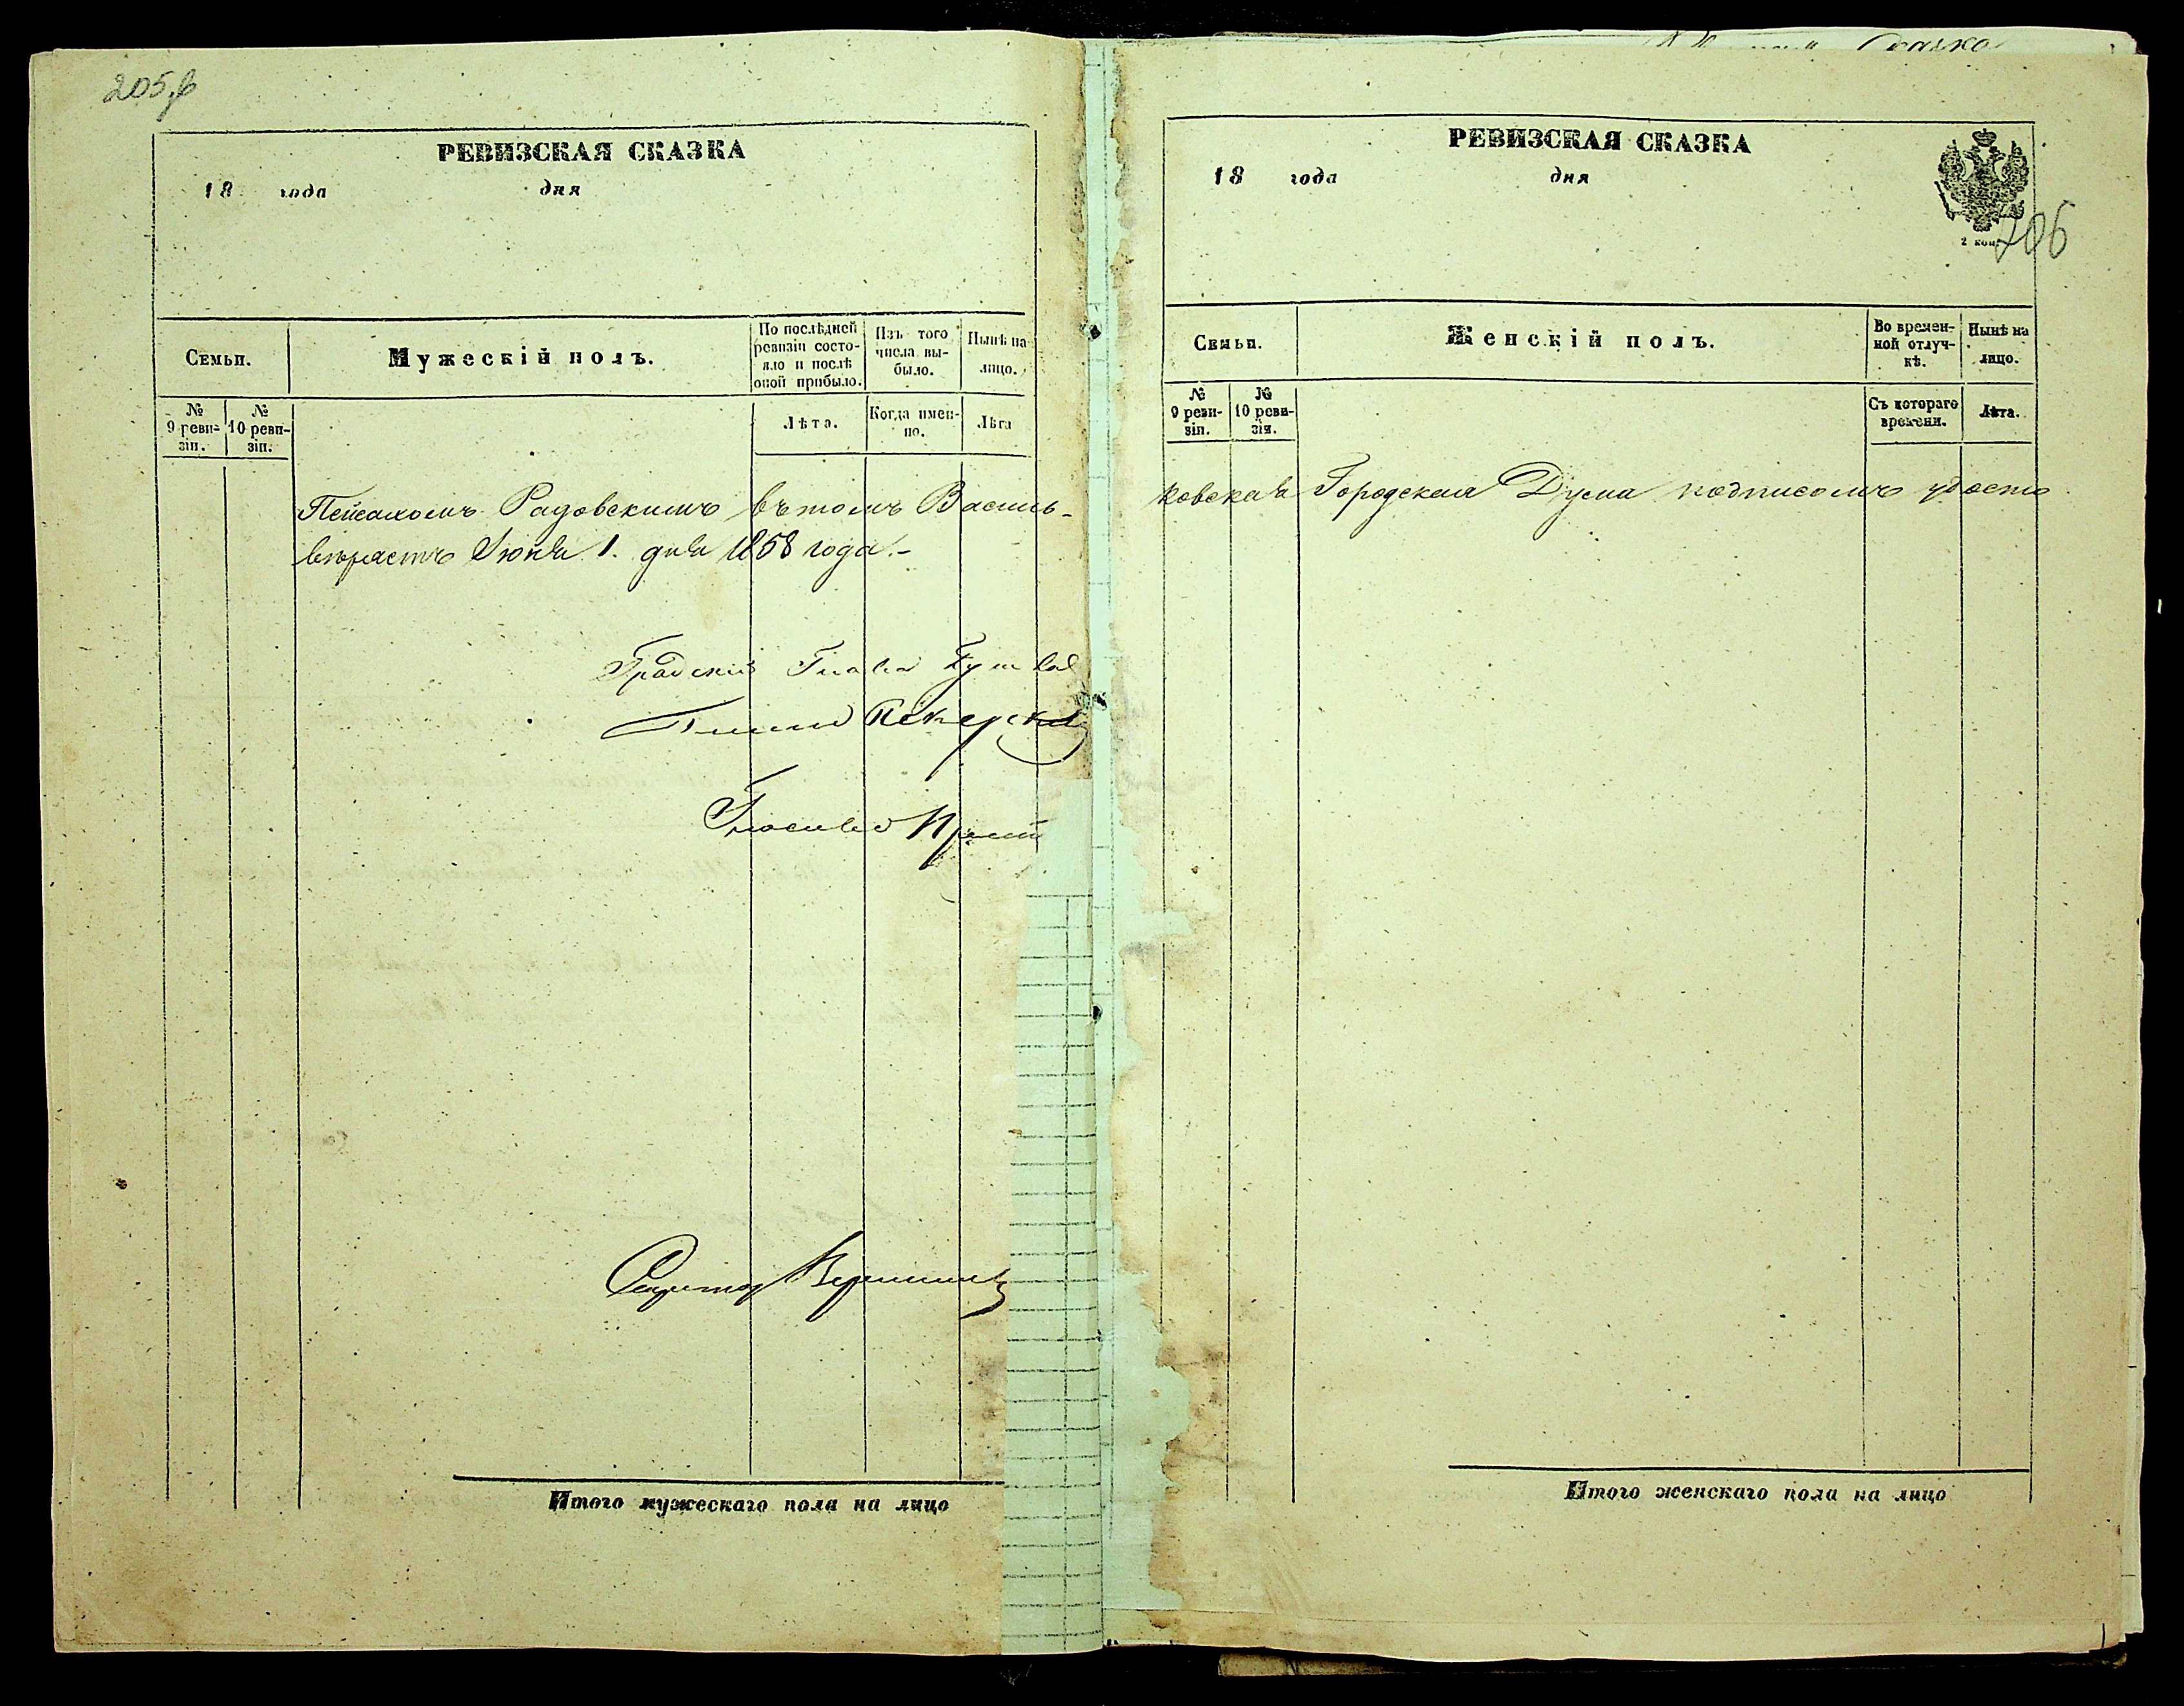 205 в
РЕВИЗСКАЯ СКАЗКА
18 года дня
Семьи.
Мужескій полъ.
По послѣдней ревизіи состояло и послѣ оной прибыло.
Изъ того числа выбыло.
Нынѣ на лицо.
№ 9 ревизіи.
№ 10 ревизіи.
Лѣта.
Когда именно.
Лѣта
Пейсахомъ Радовскимъ въ томъ Василь-
вѣряетъ Іюня 1. дня 1858 года.-
Градскій Глава
Гласный
Секретарь
Итого мужескаго пола на лицо
Сказка
РЕВИЗСКАЯ СКАЗКА
18 года дня
2 коп.
206
Семьи.
Женскій полъ.
Во временной отлучкѣ.
Нынѣ на лицо.
№ 9 ревизіи.
№ 10 ревизія.
Съ котораго времени.
Лѣта.
ковская Городская Дума подписомъ удосто
Итого женскаго пола на лицо